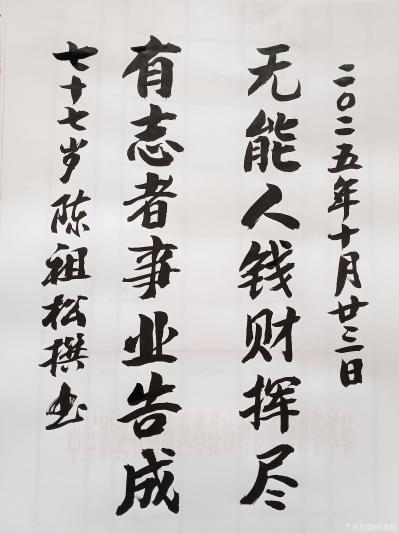 二〇二五年十月廿三日
无能人钱财挥尽
有志者事业告成
七十七岁陈祖松撰书